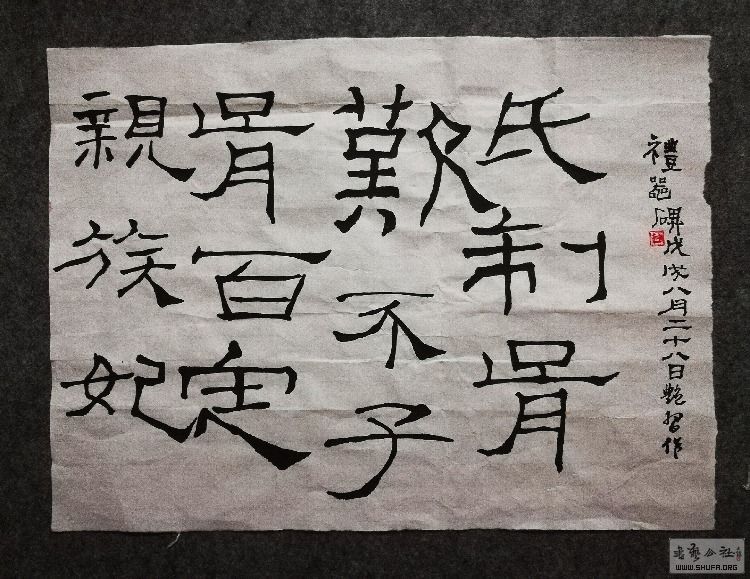 禮器碑戊戌八月二十八日艷習作
氏制胥
歎不子
胥百定
親族妃
書藝公社
WWW.SHUFA.ORG